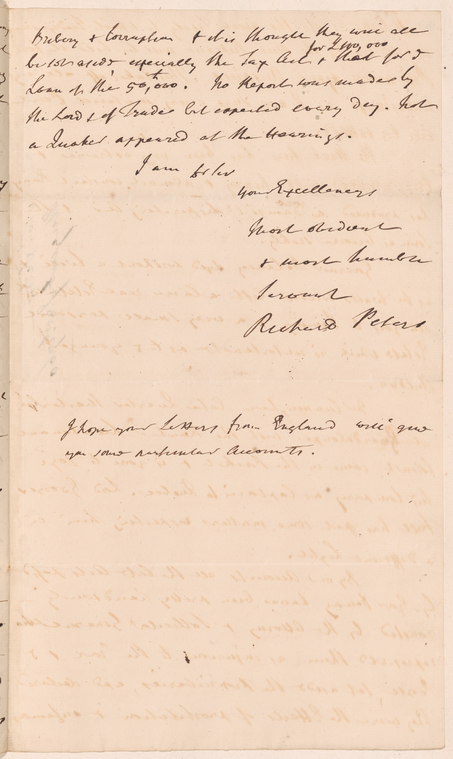 Bribery & Corruption & it is thought they will all
be set aside especially the Tax Act for £100,000 & that for ye
Loan of the 50th,000. No Report was made by
the Lords of Trade but expected every day. Not
a Quaker appeared at the Hearings.
I am Sr
your Excellencys
Most obedient
& most humble
Servant
Richard Peters
I hope your Letters from England will give
you some particular Accounts.